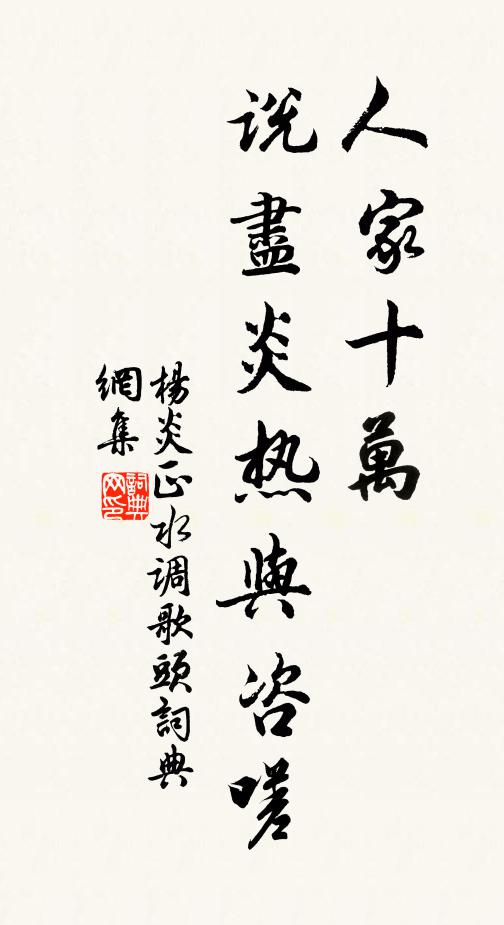 人家十萬
说盡炎热與咨嗟
楊炎正水调歌頭詞典
網集
詞典网印